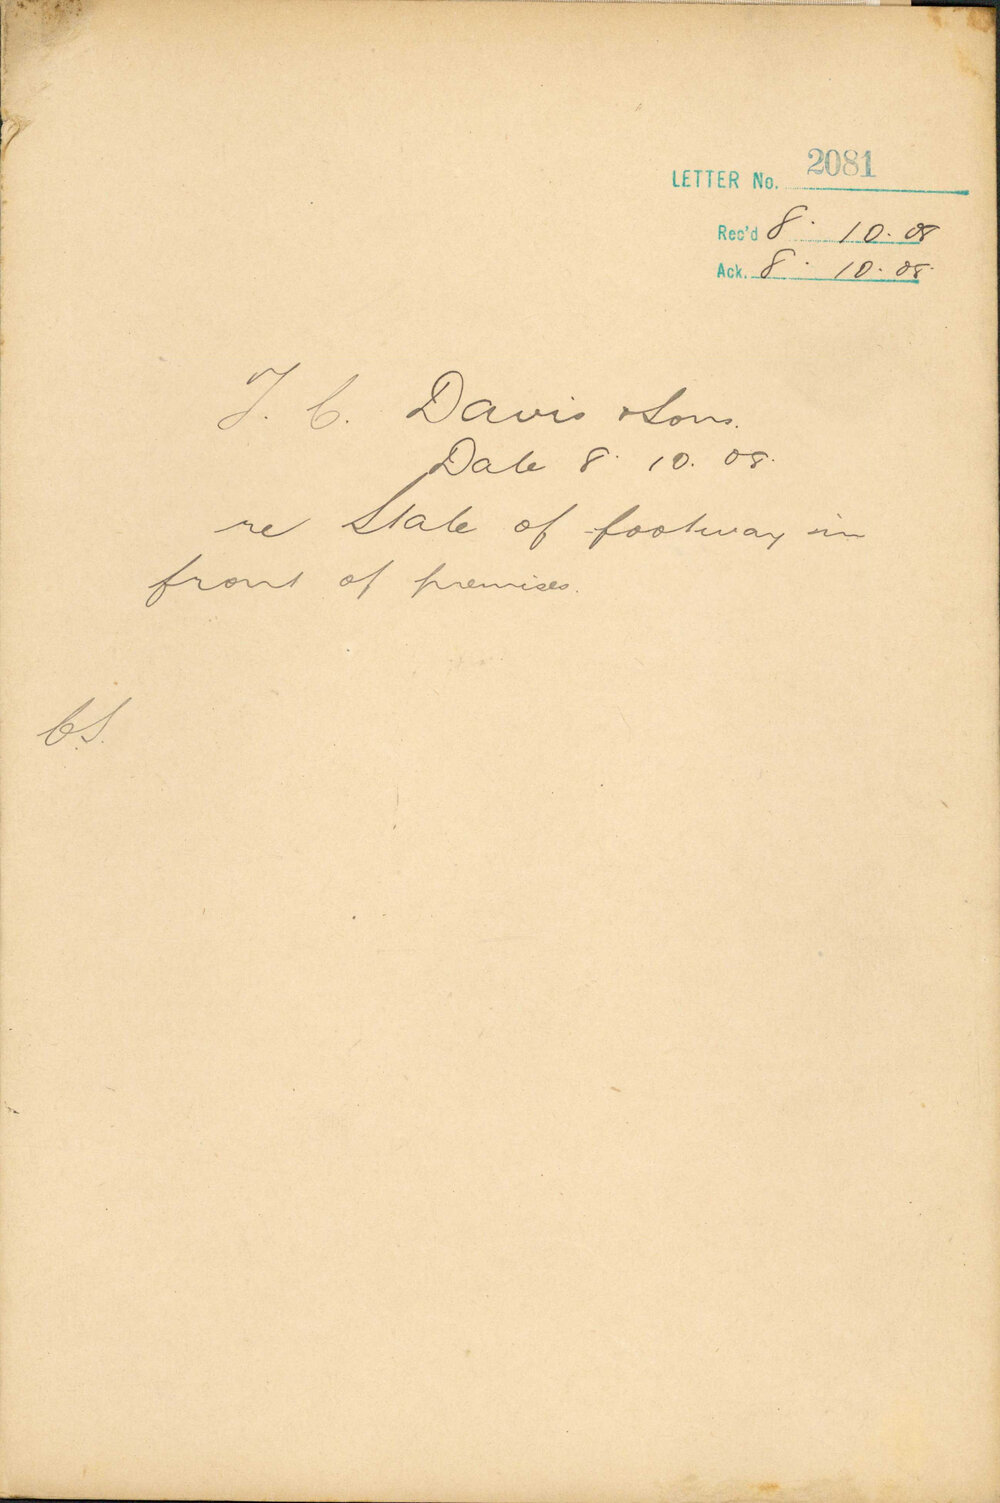 LETTER No. 2081
Rec'd 8. 10. 08
Ack. 8. 10. 08.
J. C. Davis & Sons.
Date 8. 10. 08.
re State of footway in
front of premises.
C.S.